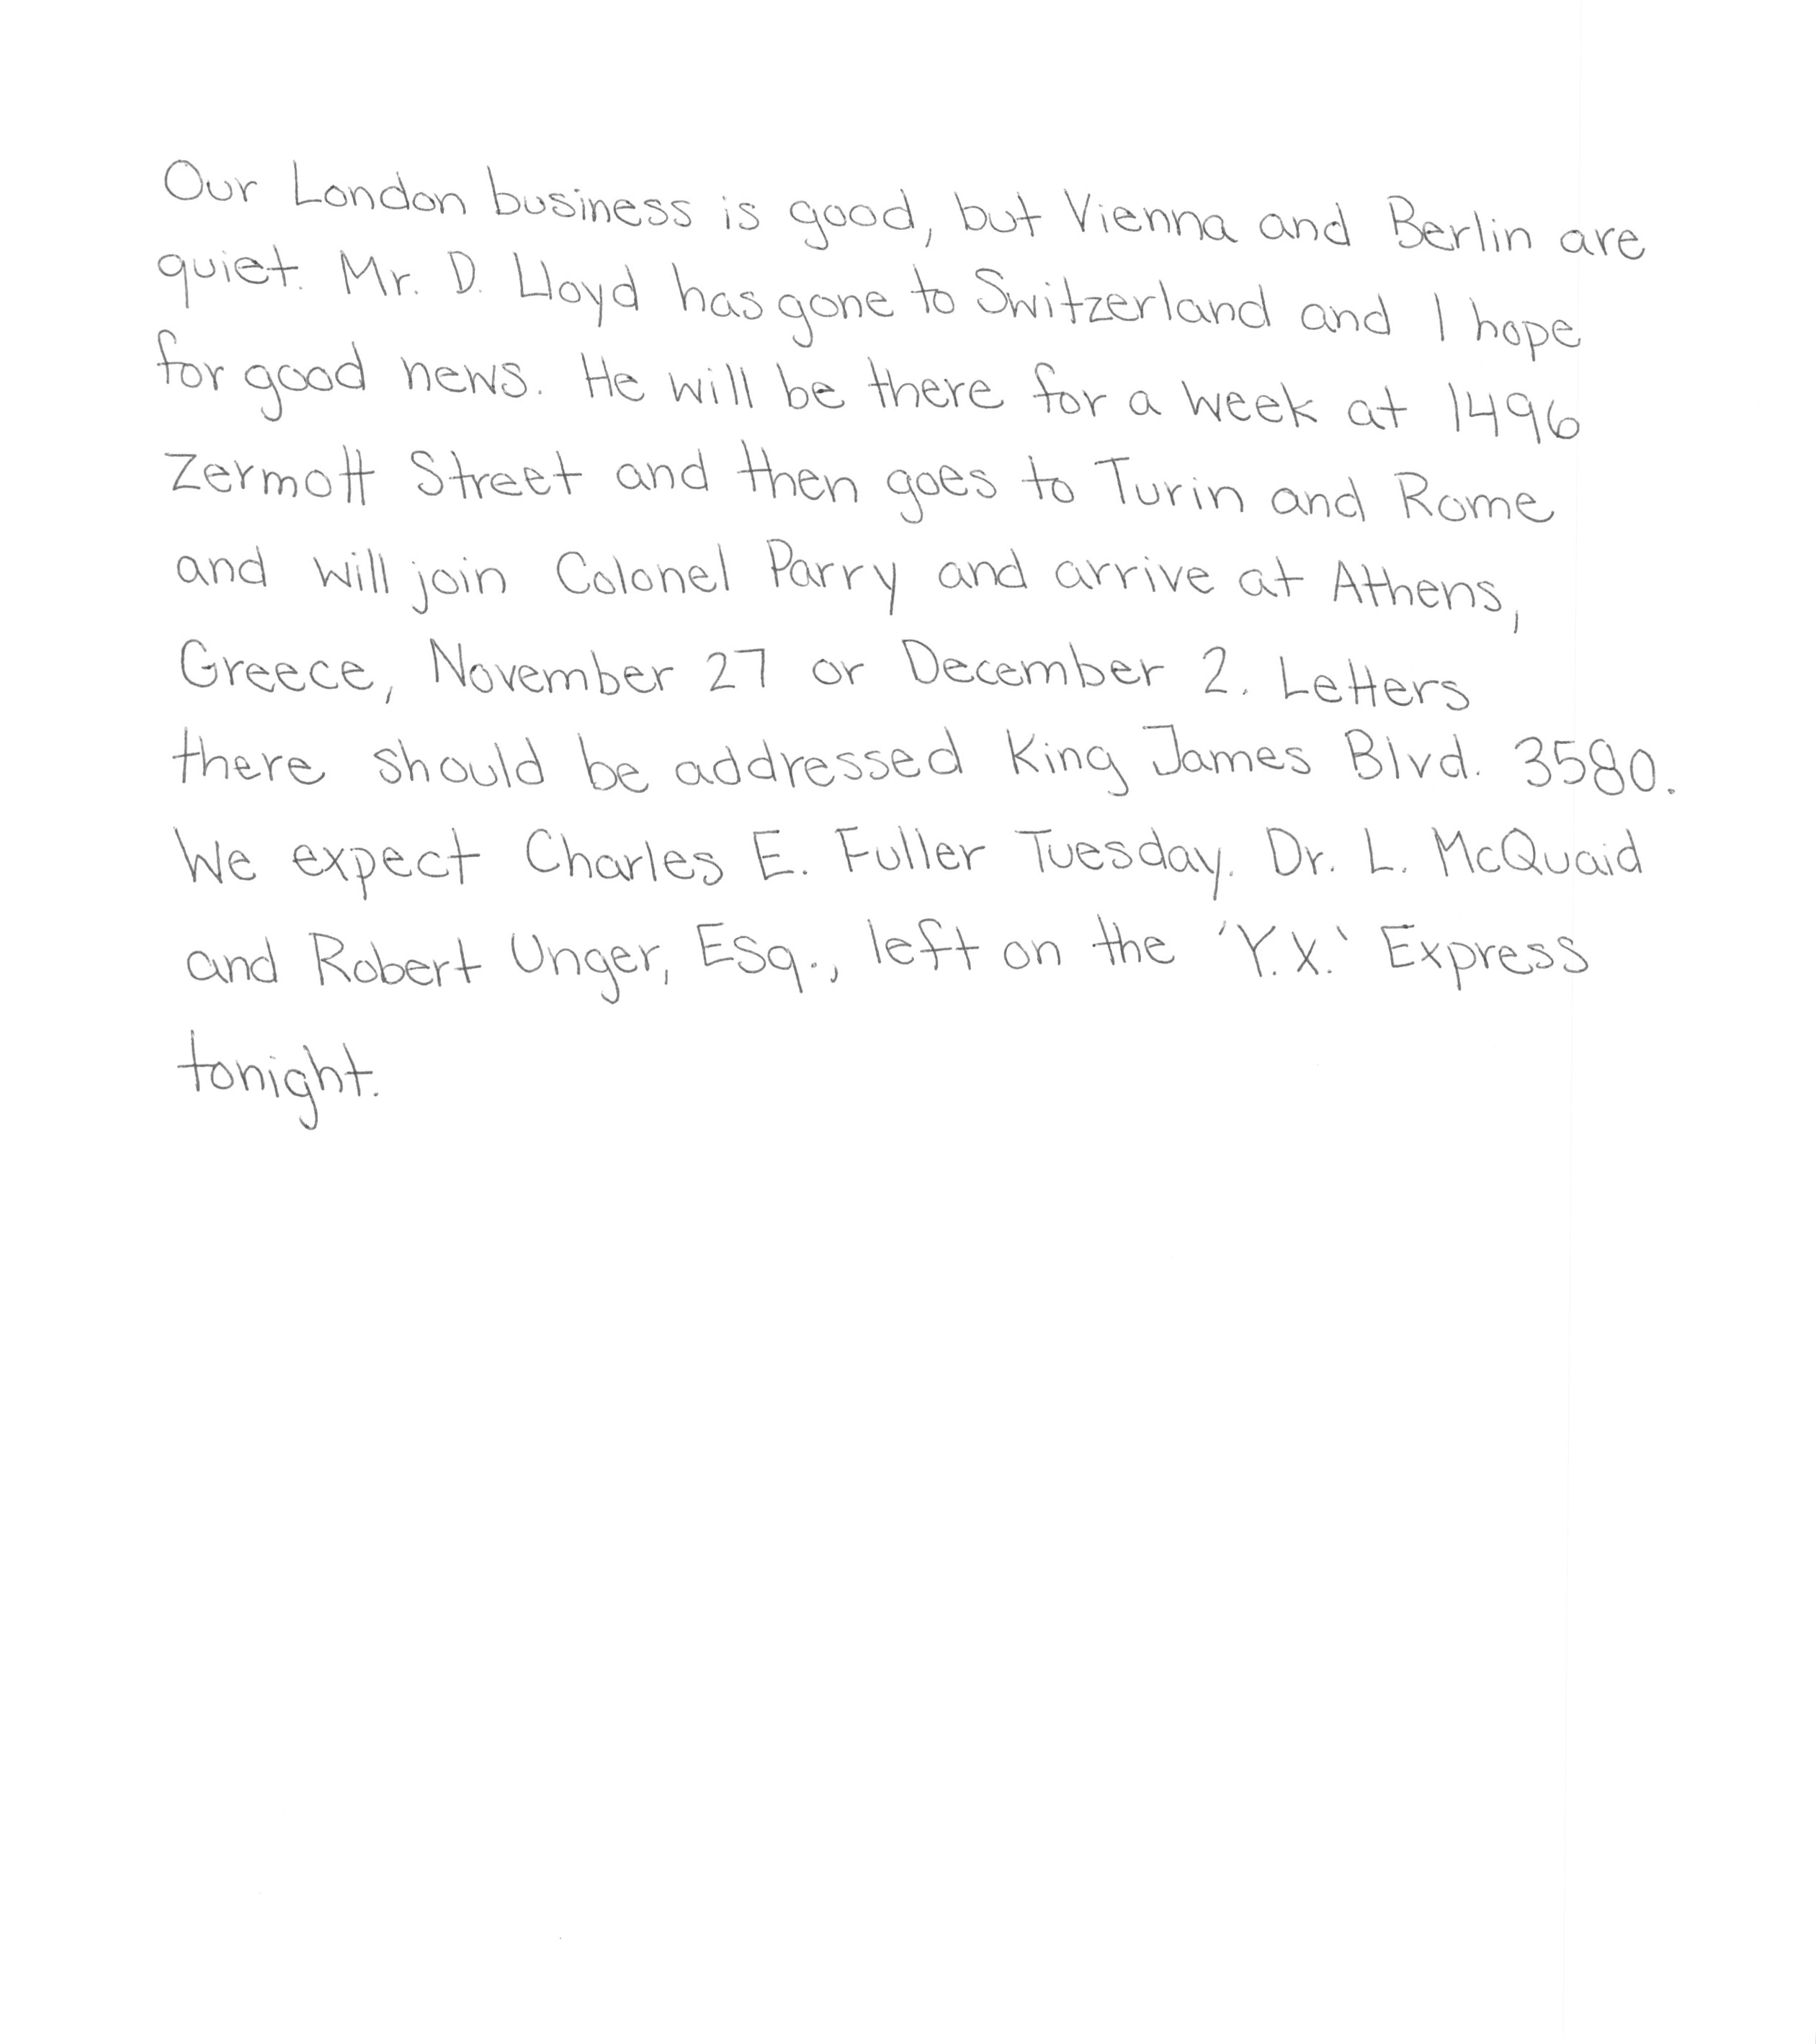 Our London business is good, but Vienna and Berlin are
quiet. Mr. D. Lloyd has gone to Switzerland and I hope
for good news. He will be there for a week at 1496
Zermott Street and then goes to Turin and Rome
and will join Colonel Parry and arrive at Athens,
Greece, November 27 or December 2. Letters
there should be addressed King James Blvd. 3580.
We expect Charles E. Fuller Tuesday. Dr. L. McQuaid
and Robert Unger, Esq., left on the 'Y.X.' Express
tonight.